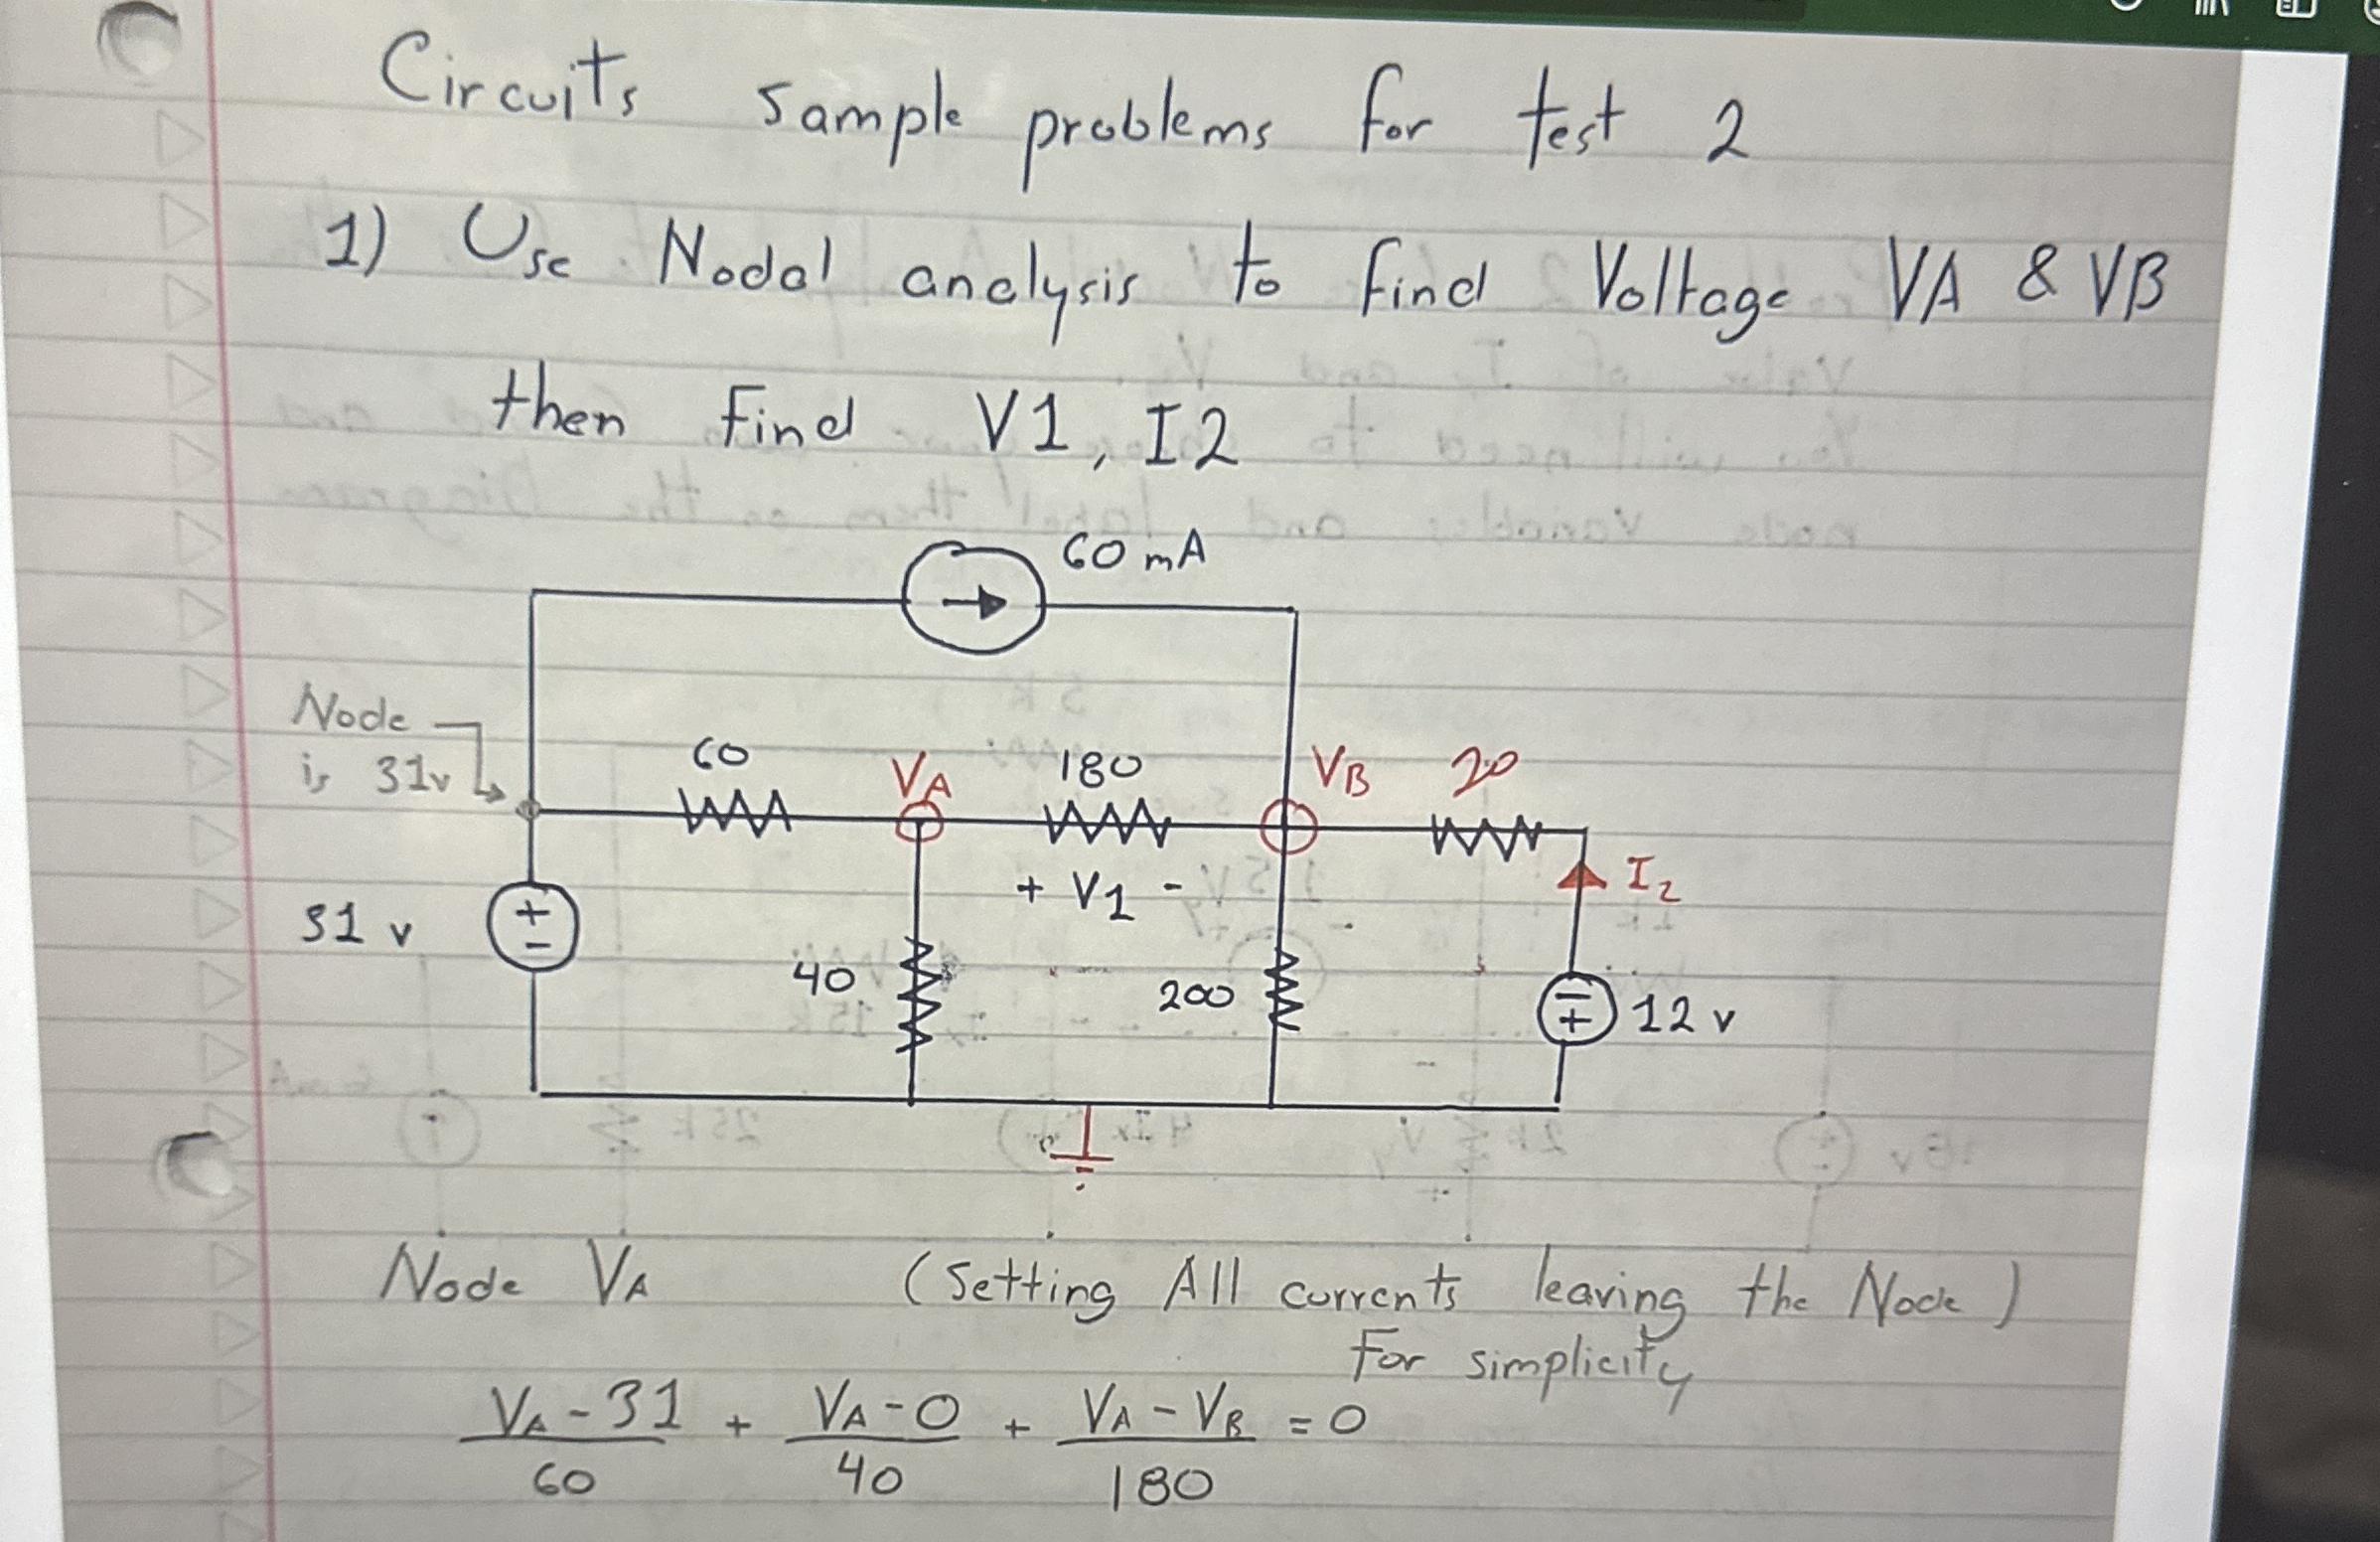 Circuits sample problems for test 2
1) Use Nodal analysis to find Voltage VA & VB
then find V1, I2
60 mA
Node
is 31v
60
VA
180
VB
20
+ V1 -
I2
31 v
+
-
40
200
-
+
12 v
Node VA (Setting All currents leaving the Node)
For simplicity
VA - 31 + VA - 0 + VA - VB = 0
60 40 180